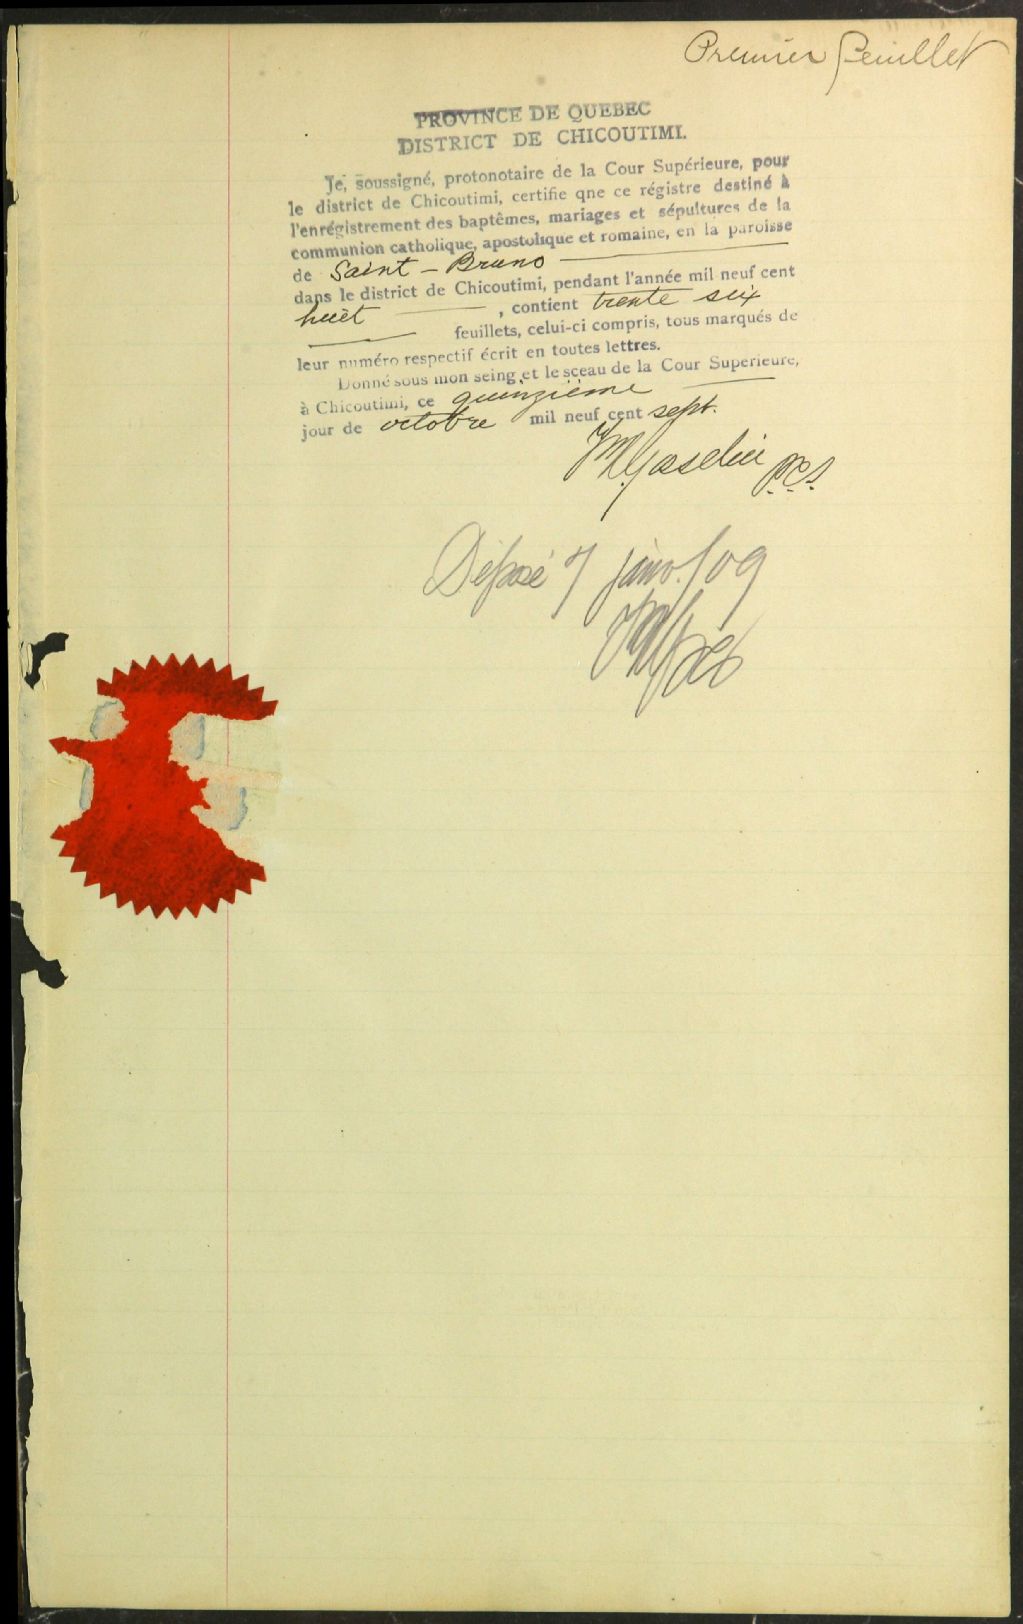 Premier feuillet
PROVINCE DE QUEBEC
DISTRICT DE CHICOUTIMI.
Je, soussigné, protonotaire de la Cour Supérieure, pour
le district de Chicoutimi, certifie qne ce régistre destiné à
l'enrégistrement des baptêmes, mariages et sépultures de la
communion catholique, apostolique et romaine, en la paroisse
de Saint - Bruno
dans le district de Chicoutimi, pendant l'année mil neuf cent
huit , contient trente six
feuillets, celui-ci compris, tous marqués de
leur numéro respectif écrit en toutes lettres.
Donné sous mon seing et le sceau de la Cour Superieure,
à Chicoutimi, ce quinzième
jour de octobre mil neuf cent sept.
P.C.S
Déposé 7 janv. / 09